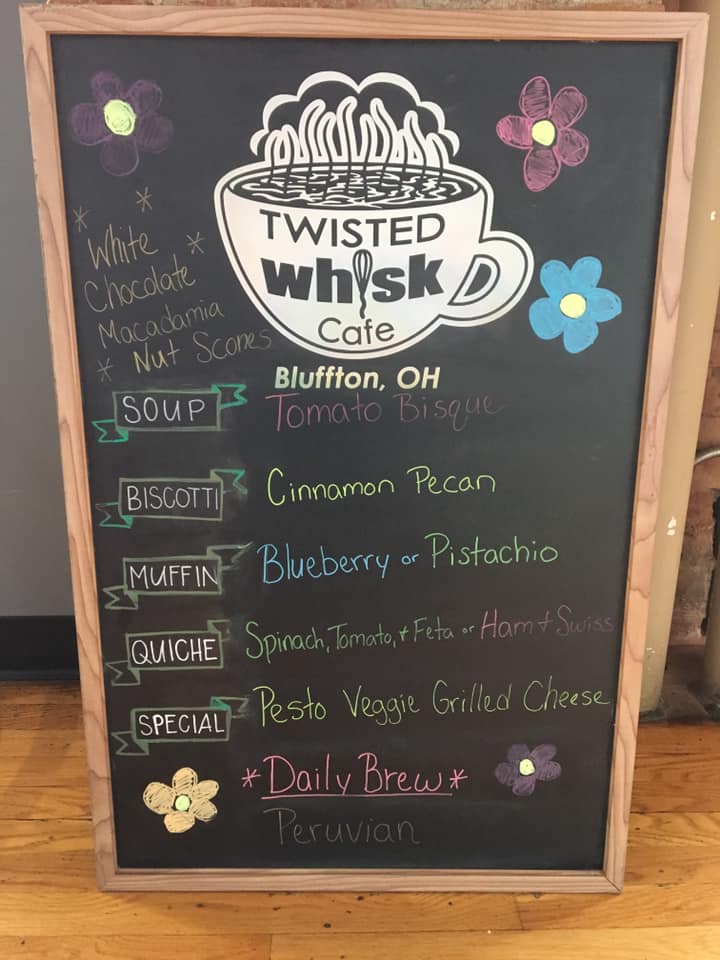 TWISTED
whisk
Cafe
Bluffton, OH
* * *
White
Chocolate
Macadamia
* Nut Scones
SOUP Tomato Bisque
BISCOTTI Cinnamon Pecan
MUFFIN Blueberry or Pistachio
QUICHE Spinach, Tomato, + Feta or Ham + Swiss
SPECIAL Pesto Veggie Grilled Cheese
*Daily Brew*
Peruvian